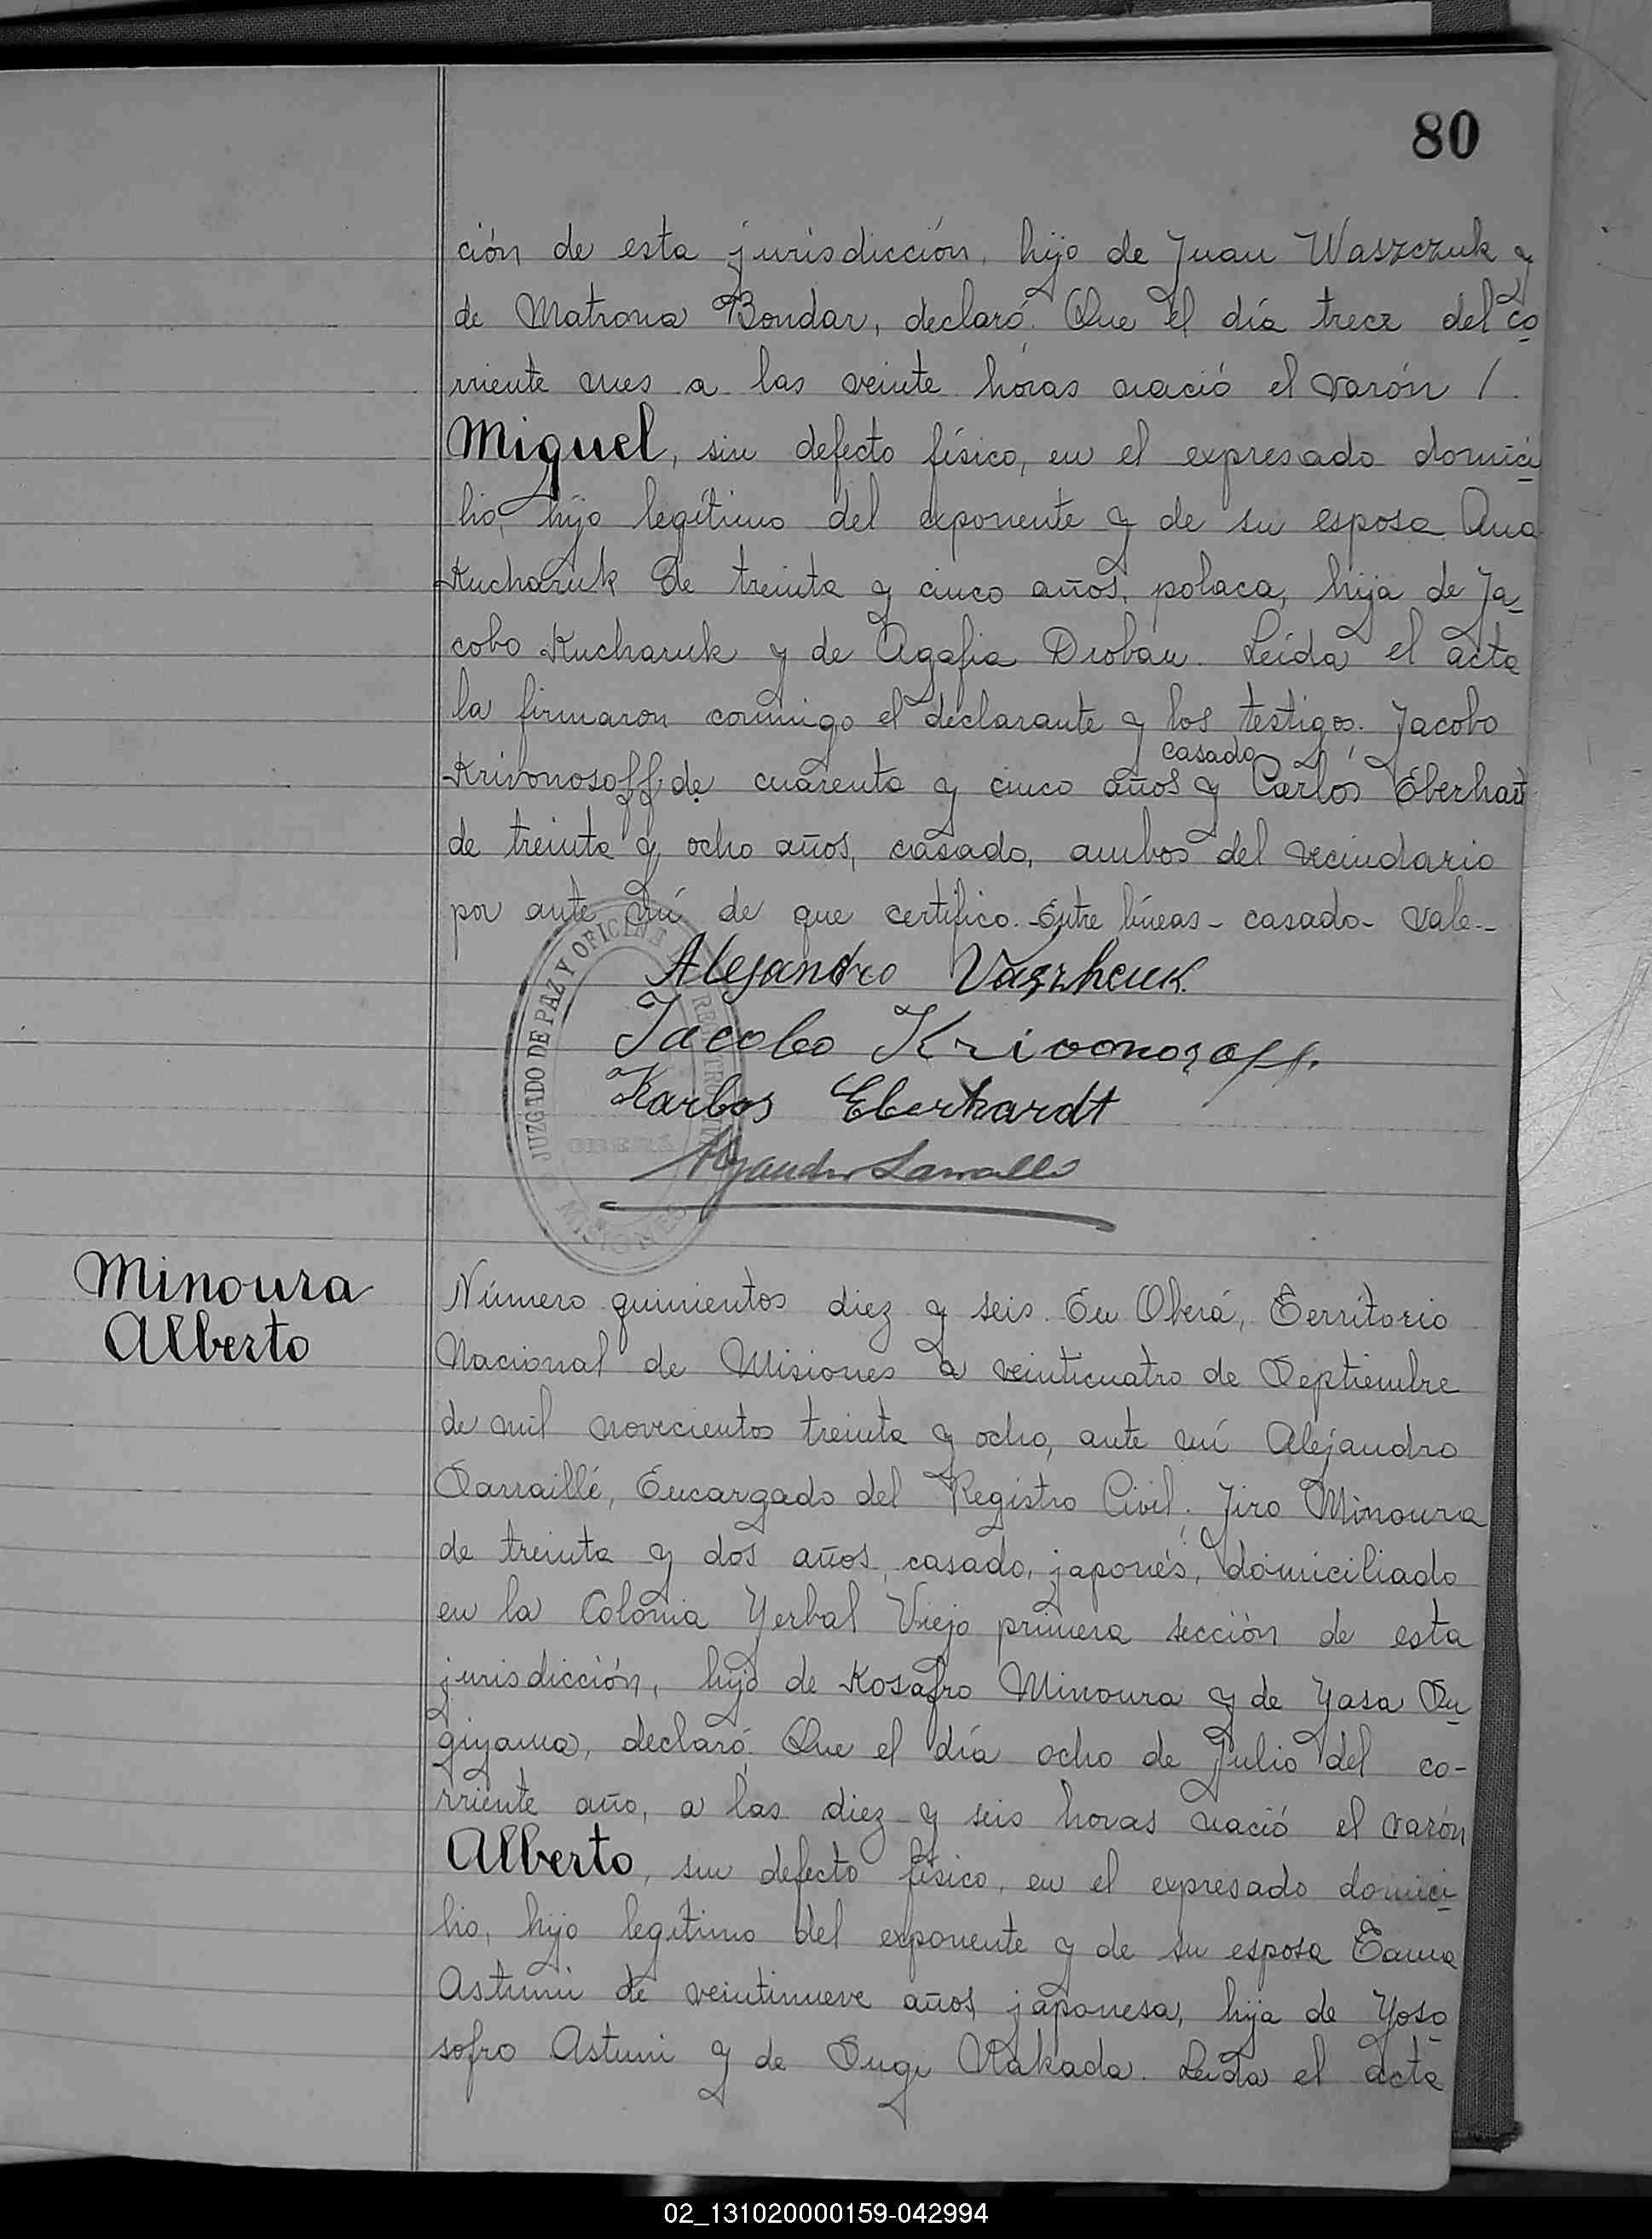 80
ción de esta jurisdicción, hijo de Juan Waszczuk y
de Matrona Bondar, declaró: Que el día trece del co
rriente mes a las veinte horas nació el varón /.
Miguel, sin defecto físico, en el expresado domici
lio, hijo legítimo del exponente y de su esposa Ana
Kucharuk de treinta y cinco años, polaca, hija de Ja
cobo Kucharuk y de Agafia Droban. Leída el acta
la firmaron conmigo el declarante y los testigos: Jacobo
casado
Krivonosoff de cuarenta y cinco años y Carlos Eberhart
de treinta y ocho años, casado, ambos del vecindario
por ante mí de que certifico. Entre líneas - casado - vale.-
Alejandro Vaszhcuk
Jacobo Krivonosoff.
Karlos Eberhardt
JUZGADO DE PAZ Y OFICINA REGISTRO
OBERÁ
MISIONES
Minoura
Alberto
Número quinientos diez y seis. En Oberá, Territorio
Nacional de Misiones a veinticuatro de Septiembre
de mil novecientos treinta y ocho, ante mí Alejandro
Sarraillé, Encargado del Registro Civil: Jiro Minoura
de treinta y dos años, casado, japonés, domiciliado
en la Colonia Yerbal Viejo primera sección de esta
jurisdicción, hijo de Kosafro Minoura y de Yasa Su
giyama, declaró: Que el día ocho de Julio del co-
rriente año, a las diez y seis horas nació el varón
Alberto, sin defecto físico, en el expresado domici
lio, hijo legítimo del exponente y de su esposa Tama
Astumi de veintinueve años, japonesa, hija de Yoso
sofro Astumi y de Sugi Nakada. Leída el acta
02_131020000159-042994